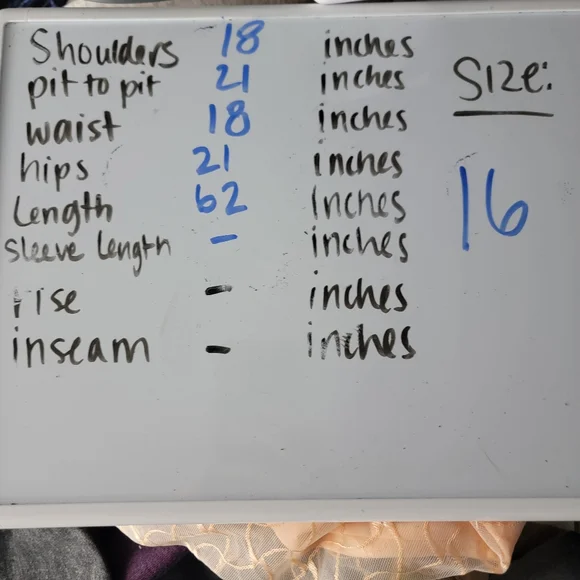 Shoulders 18 inches
pit to pit 21 inches
waist 18 inches
hips 21 inches
Length 62 Inches
Sleeve Length - inches
rise - inches
inseam - inches
Size:
16